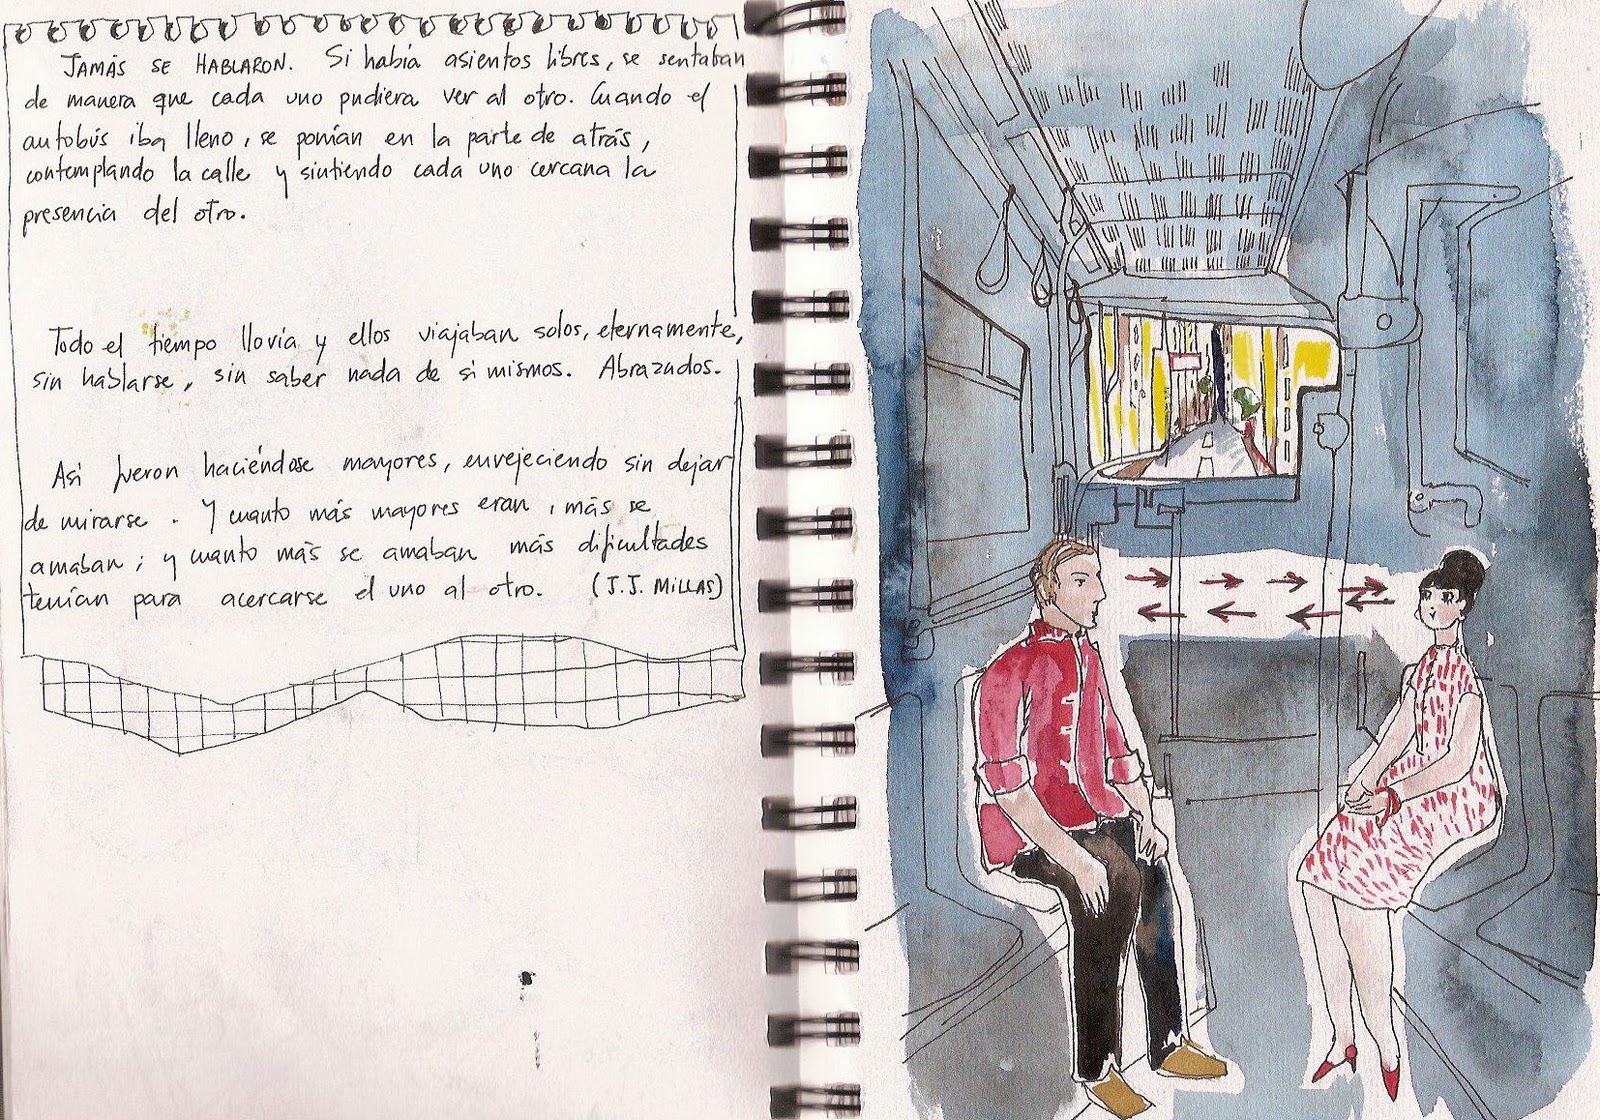 JAMÁS SE HABLARON. Si había asientos libres, se sentaban
de manera que cada uno pudiera ver al otro. Cuando el
autobús iba lleno, se ponían en la parte de atrás,
contemplando la calle y sintiendo cada uno cercana la
presencia del otro.
Todo el tiempo llovía y ellos viajaban solos, eternamente,
sin hablarse, sin saber nada de si mismos. Abrazados.
Asi fueron haciéndose mayores, envejeciendo sin dejar
de mirarse. Y cuanto más mayores eran, más se
amaban; y cuanto más se amaban más dificultades
tenían para acercarse el uno al otro. (J.J. MILLAS)